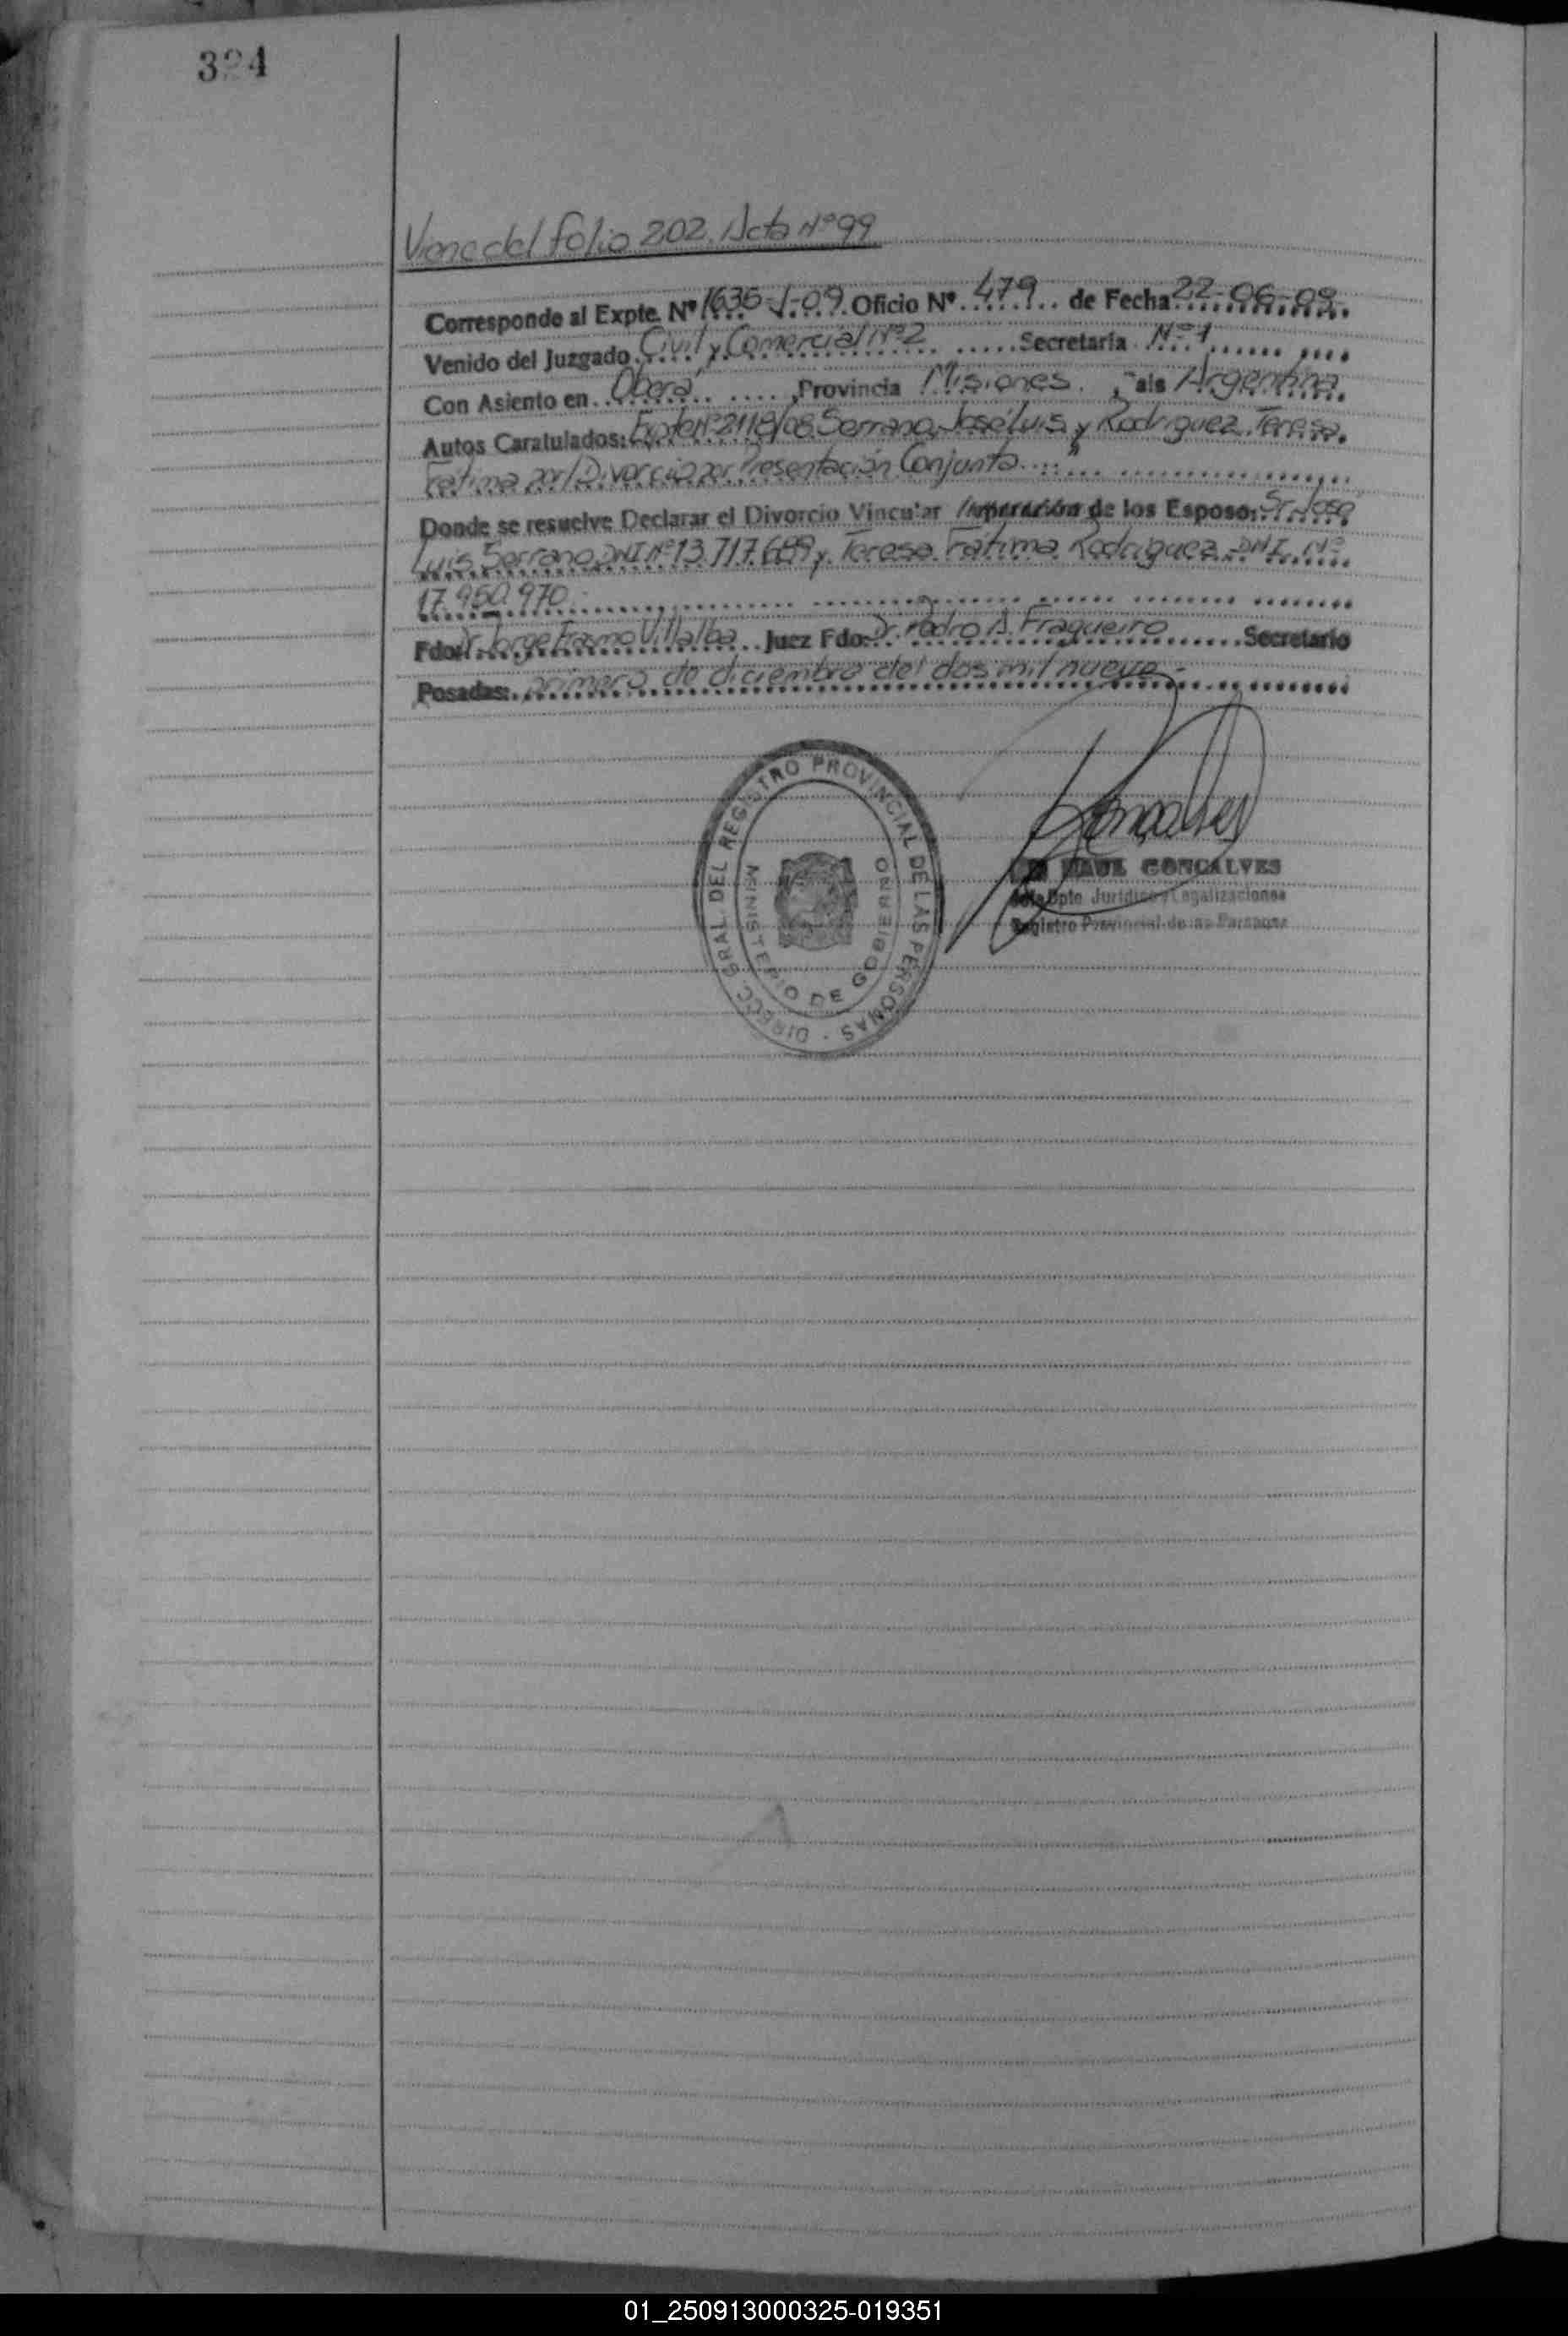 324
Viene del folio 202. Acta Nº 99
Corresponde al Expte. Nº 1635-J-09. Oficio Nº 479 de Fecha 22-06-09.
Venido del Juzgado Civil y Comercial Nº 2 Secretaría Nº 1
Con Asiento en Oberá, Provincia Misiones, País Argentina
Autos Caratulados: Expte Nº 2118/08 Serrano, José Luis y Rodriguez, Teresa
Fatima por/Divorcio por Presentación Conjunta
Donde se resuelve Declarar el Divorcio Vincular / de los Esposo: Sr. José
Luis Serrano DNI Nº 13.717.689 y Teresa Fátima Rodriguez - DNI Nº
17.950.970
Fdo: Dr. Jorge Erasmo Villalba Juez Fdo: Dr. Pedro A. Fragueiro Secretario
Posadas: primero de diciembre del dos mil nueve.-
DIRECC. GRAL. DEL REGISTRO PROVINCIAL DE LAS PERSONAS
MINISTERIO DE GOBIERNO
RAUL GONCALVES
Dpto Jurídico y Legalizaciones
Registro Provincial de las Personas
01_250913000325-019351